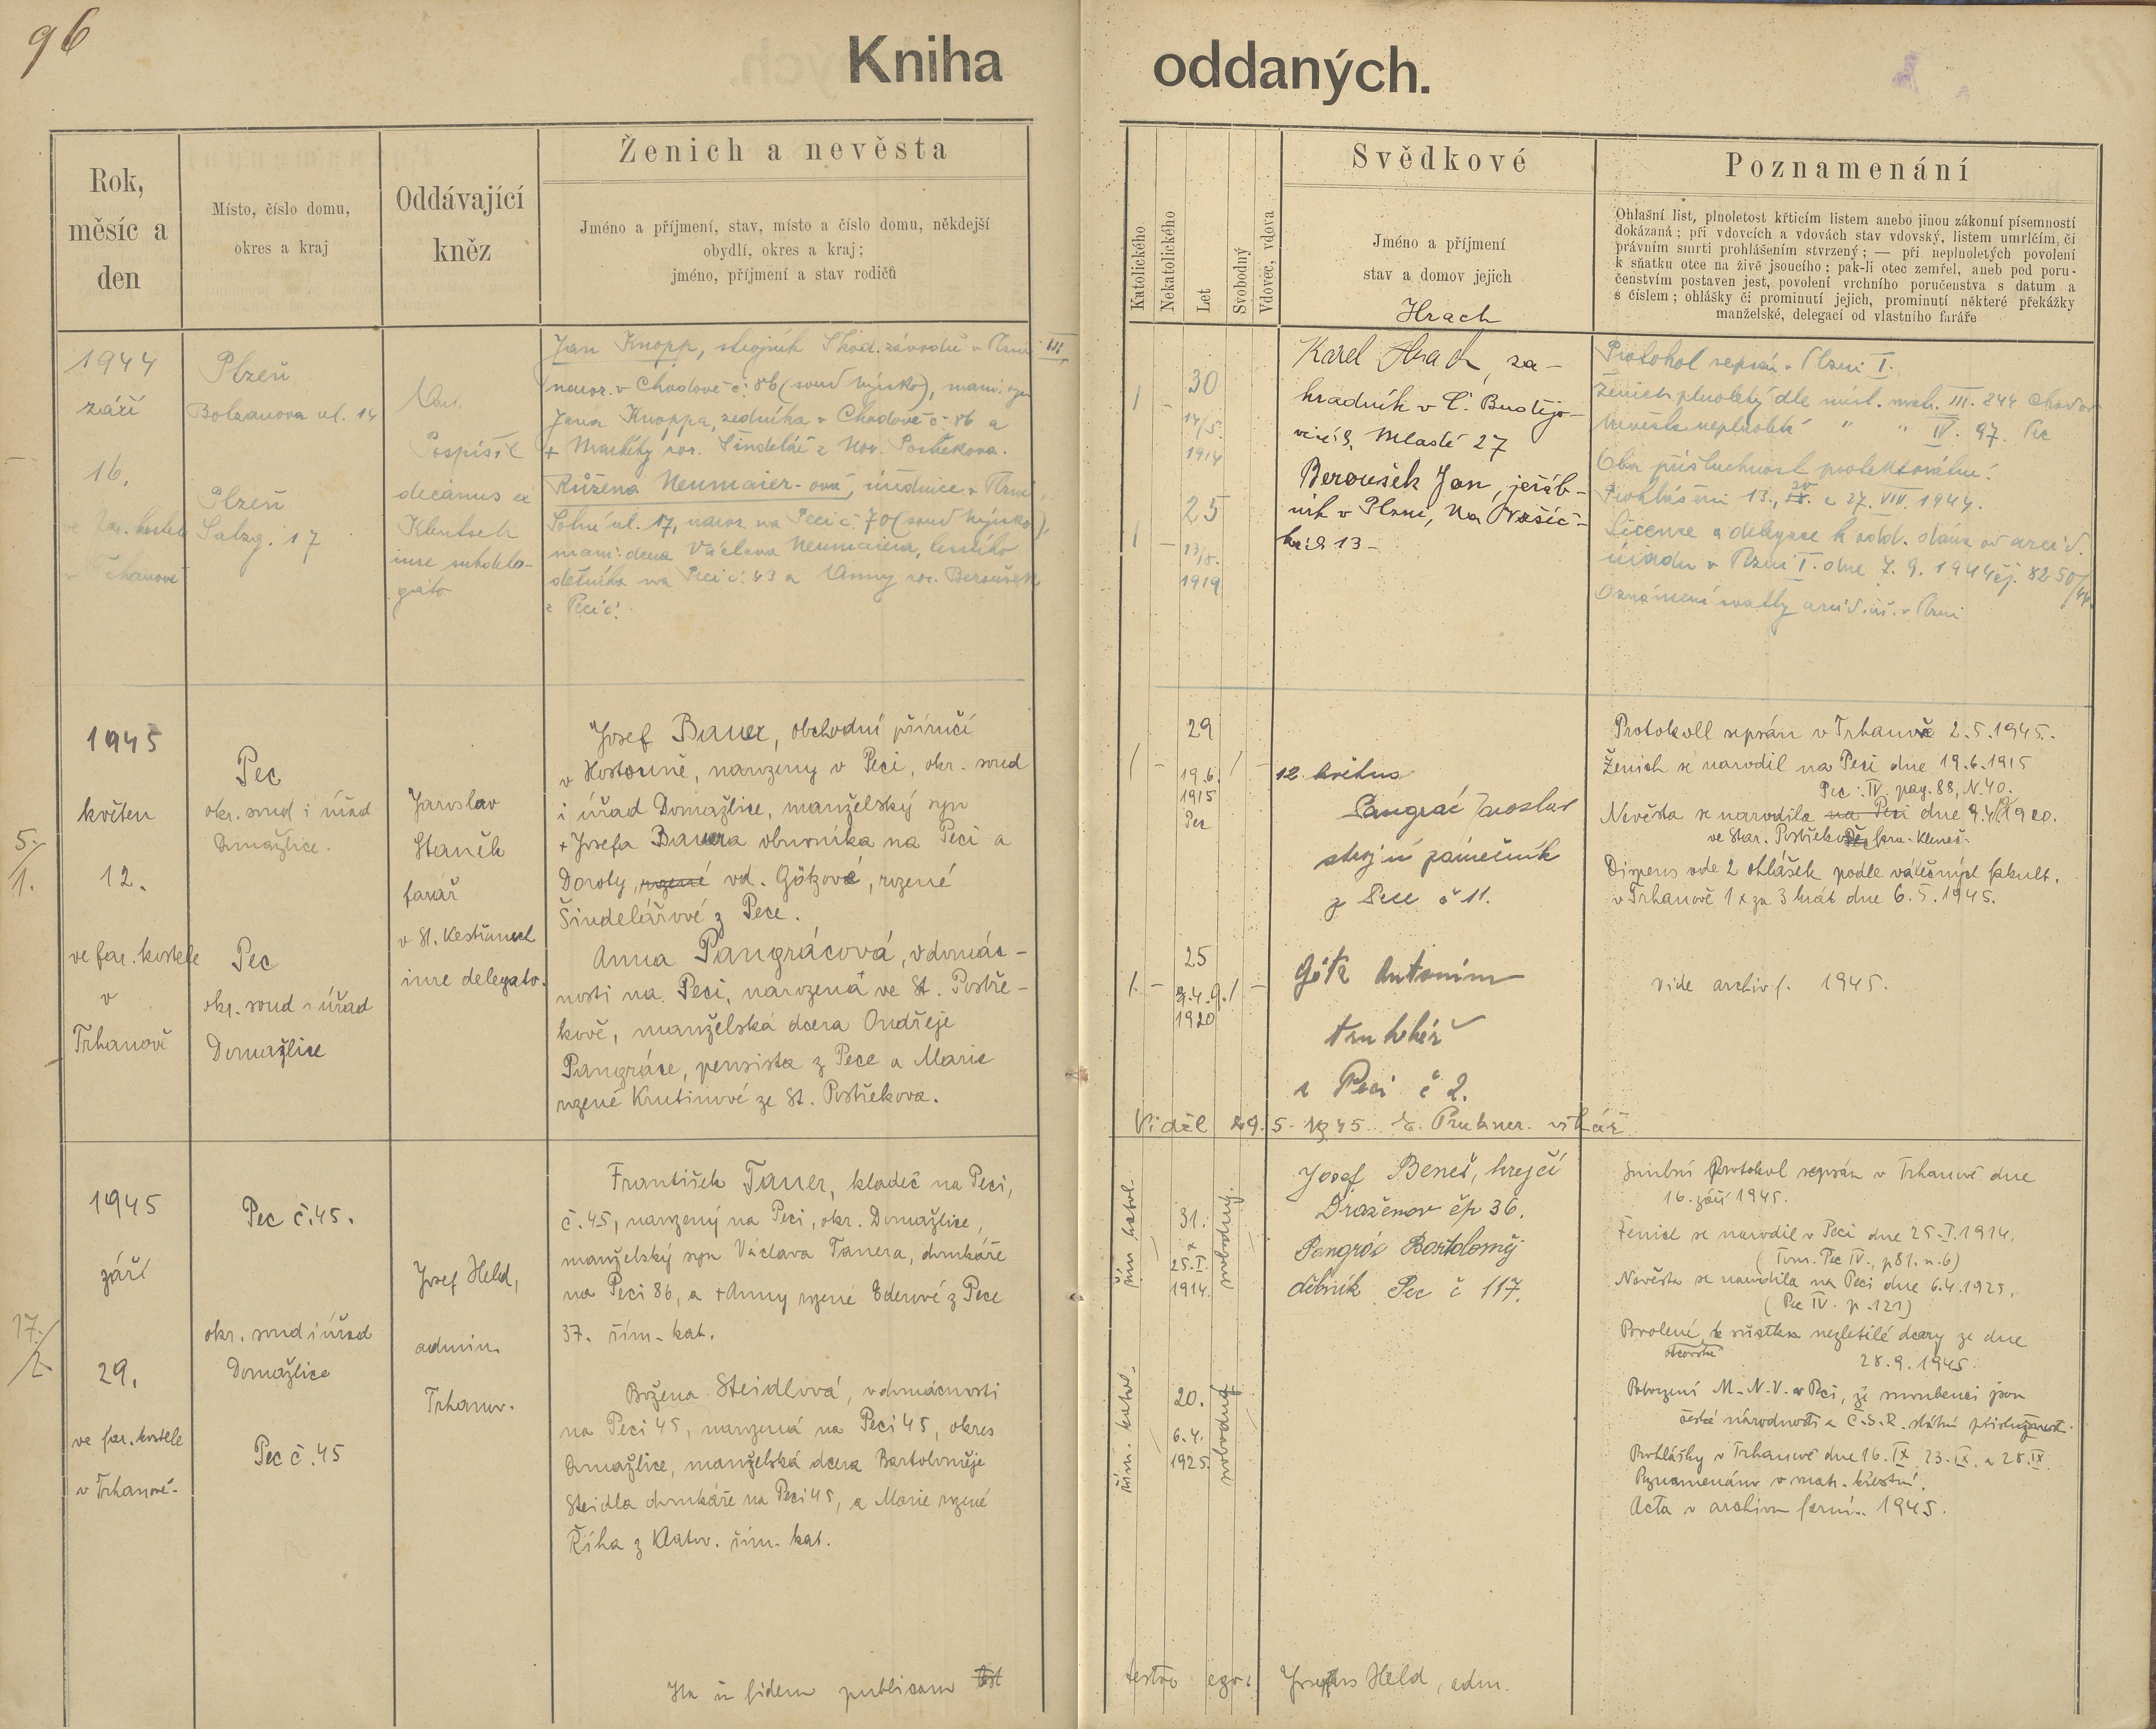 96
Kniha oddaných.
Rok,
měsíc a
den
Místo, číslo domu,
okres a kraj
Oddávající
kněz
Ženich a nevěsta
Jméno a příjmení, stav, místo a číslo domu, někdejší
obydlí, okres a kraj;
jméno, příjmení a stav rodičů
Katolického
Nekatolického
Let
Svobodný
Vdovec, vdova
Svědkové
Jméno a příjmení
stav a domov jejich
Poznamenání
Ohlašní list, plnoletost křticím listem anebo jinou zákonní písemností
dokázaná; při vdovcích a vdovách stav vdovský, listem umrlčím, či
právním smrti prohlášením stvrzený; — při neplnoletých povolení
k sňatku otce na živě jsoucího; pak-li otec zemřel, aneb pod poru-
čenstvím postaven jest, povolení vrchního poručenstva s datum a
s číslem; ohlášky či prominutí jejich, prominutí některé překážky
manželské, delegací od vlastního faráře
1944
září
16.
ve far. kostele
Plzeň
Bolzanova ul. 14
Plzeň
Salzg. 17
Ant.
Pospíšil
decanus
Klentsch
iure subdele-
gato
Jan Knopp, strojník Škod. závodů v Plzni III
naroz. v Chodově č. 86 (soud Nýrsko), manž. syn
Jana Knoppa, zedníka v Chodově č. 86 a
+ Markéty roz. Šindelář z Nov. Postřekova.
Růžena Neumaier-ová, úřednice v Plzni,
Solní ul. 17, naroz. na Peci č. 70 (soud Nýrsko),
manž. dcera Václava Neumaiera, lesního
dělníka na Peci č. 43 a Anny roz. Beroušek
z Peci č.
30
14/5.
1914
25
13/8.
1919
Hrach
Karel Hrach, za-
hradník v Č. Budějo-
vicích, Mladé 27
Beroušek Jan, jeřáb-
ník v Plzni, Na
13 -
Protokol sepsán v Plzni I.
Ženich plnoletý dle míst. matr. III. 244 Chodov
Nevěsta neplnoletá " " IV. 97. Pec
Oba příslušnost protektorátní.
Prohlášeni 13., 20. a 27. VIII. 1944.
Licence a delegace k odd. dána od arcid.
úřadu v Plzni I. dne 7. 9. 1944 čj. 8250/44.
Oznámení svatby arcid. úř. v Plzni
5./1.
1945
květen
12.
ve far. kostele
v
Trhanově
Pec
okr. soud i úřad
Domažlice.
Pec
okr. soud i úřad
Domažlice
Jaroslav
Staněk
farář
v St. Kestřanech
iure delegato.
Josef Bauer, obchodní příručí
v Hostouně, narozený v Peci, okr. soud
i úřad Domažlice, manželský syn
+ Josefa Bauera obuvníka na Peci a
Doroty, rozené vd. Götzové, rozené
Šindelářové z Pece.
Anna Pangrácová, v domác-
nosti na Peci, narozená ve St. Postře-
kově, manželská dcera Ondřeje
Pangráce, pensista z Pece a Marie
rozené Krutinové ze St. Postřekova.
29
19.6.
1915
Pec
25
9.4.
1920
12. května
Pangrác Jaroslav
strojní zámečník
z Pece č 11.
Götz Antonín
truhlář
z Peci č 2.
Protokoll sepsán v Trhanově 2.5.1945.
Ženich se narodil na Peci dne 19.6.1915
Pec: IV. pag. 88, N. 40.
Nevěsta se narodila na Peci dne 9.4.1920.
ve Star. Postřekově, fara Kleneč.
Dispens ode 2 ohlášek podle válečných fakult.
v Trhanově 1 x za 3 krát dne 6.5.1945.
vide archiv f. 1945.
Viděl 29. 5. 1945. vikář
17./2.
1945
září
29.
ve far. kostele
v Trhanově.
Pec č. 45.
okr. soud i úřad
Domažlice
Pec č. 45
Josef Held,
admin.
Trhanov.
František Tauer, kladeč na Peci,
č. 45, narozený na Peci, okr. Domažlice,
manželský syn Václava Tauera, domkáře
na Peci 86, a + Anny rozené Ederové z Pece
37. řím.-kat.
Božena Steidlová, v domácnosti
na Peci 45, narozená na Peci 45, okres
Domažlice, manželská dcera Bartoloměje
Steidla domkáře na Peci 45, a Marie rozené
Říha z Klatov. řím.-kat.
řím. katol.
31.
25. I.
1914.
svobodný.
řím. katol.
20.
6. 4.
1925.
svobodná
Josef Beneš, krejčí
Draženov čp 36.
Pangrác Bartoloměj
dělník Pec č 117.
Snubní protokol sepsán v Trhanově dne
16. září 1945.
Ženich se narodil v Peci dne 25. I. 1914.
(Tom. Pec IV., p 81. n. 6)
Nevěsta se narodila na Peci dne 6.4.1925.
(Pec IV. p. 121)
Povolení otcovské k sňatku nezletilé dcery ze dne
28. 9. 1945.
Potvrzení M.N.V. v Peci, že snoubenci jsou
české národnosti a Č.S.R. státní příslušnosti.
Prohlášky v Trhanově dne 16. IX. 23. IX. a 28. IX.
Poznamenáno v matr. křestní.
Acta v archivu farním 1945.
Ita in fidem publicam test
testor ego: Josephus Held, adm.